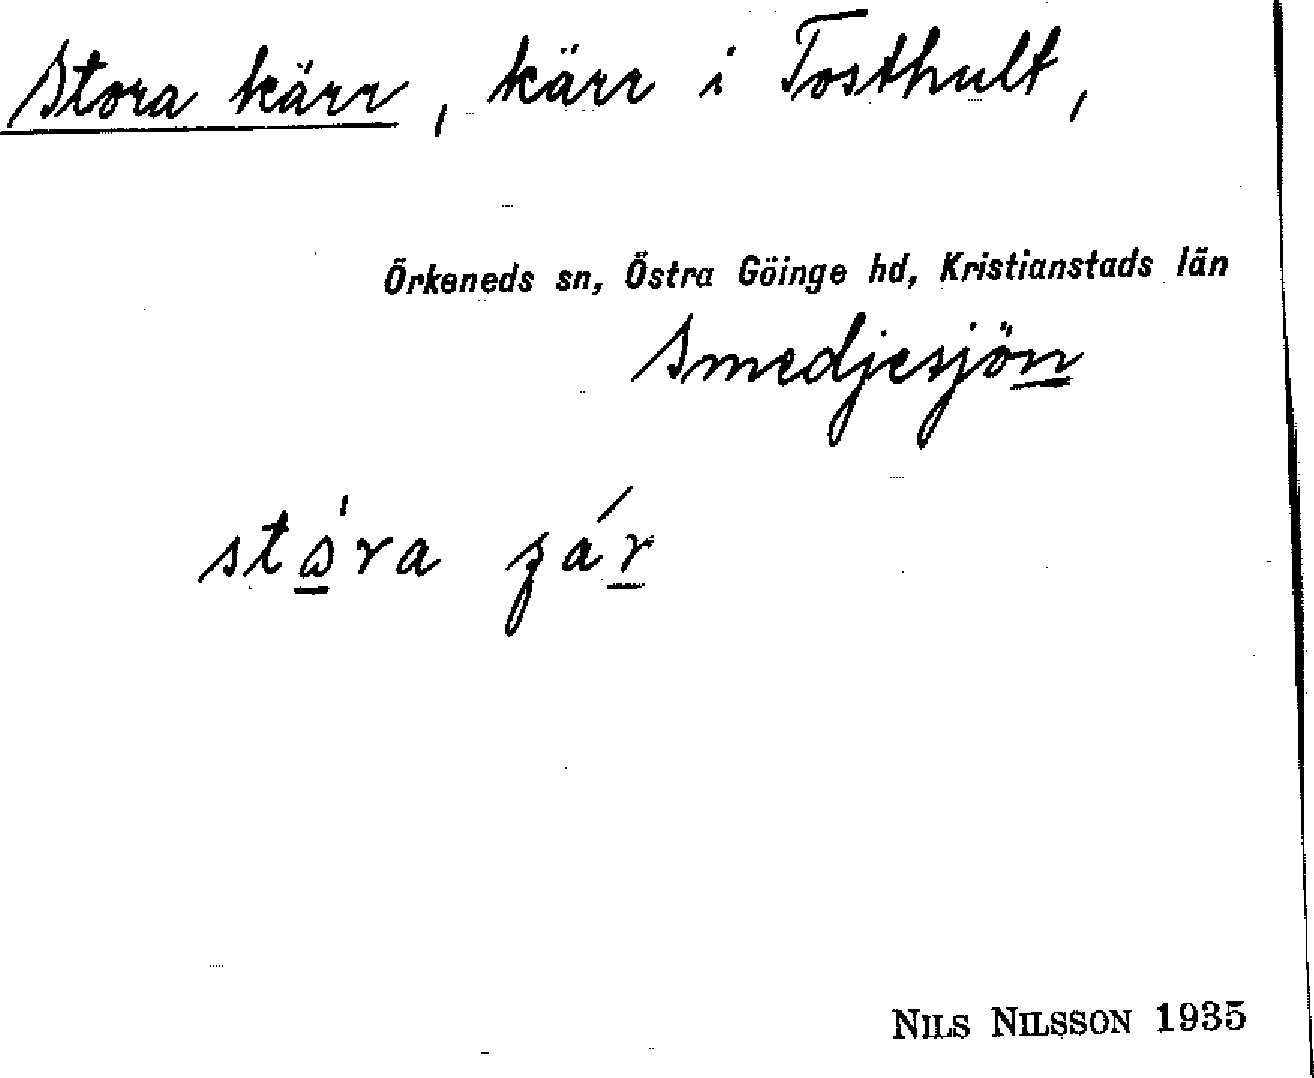 Stora kärr, kärr i Tosthult,
Örkeneds sn, Östra Göinge hd, Kristianstads län
Smedjesjön
NILS NILSSON 1935